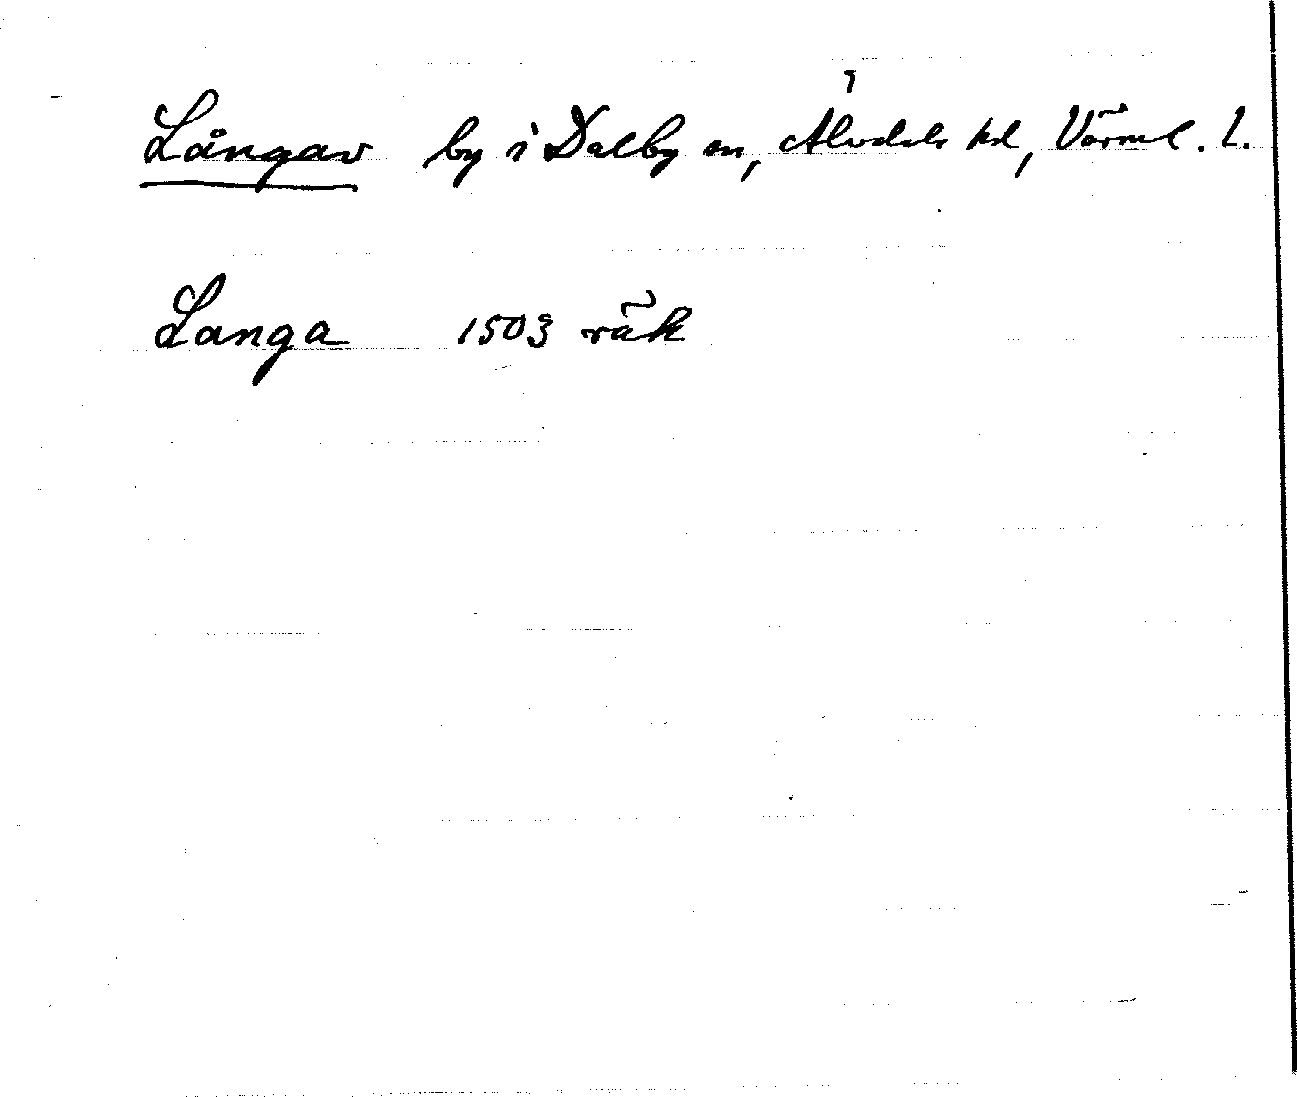 Långav by i Dalby sn, Älvdals hd, Värml. l.
Langa 1503 räk